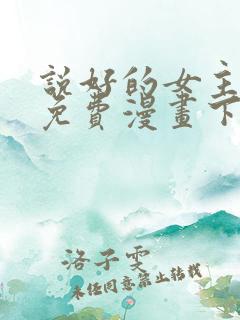 說好的女主
免費漫畫下
洛子雯
未任同意禁止转载